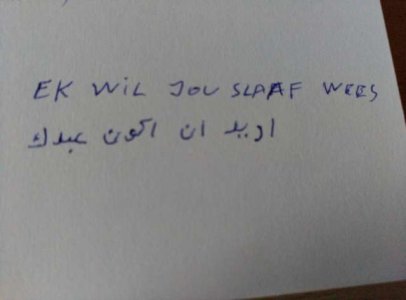 EK WIL JOU SLAAF WEES
اريد ان اكون عبدك